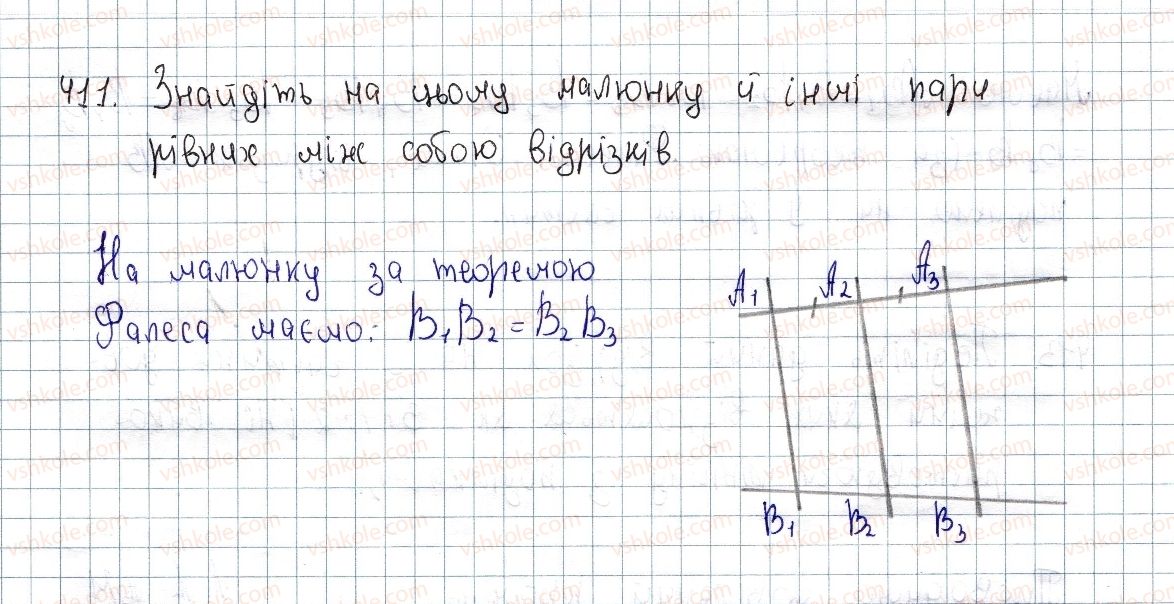 411. Знайдіть на цьому малюнку й інші пари
рівних між собою відрізків.
На малюнку за теоремою
Фалеса маємо: B₁B₂ = B₂B₃
A₁ A₂ A₃
B₁ B₂ B₃